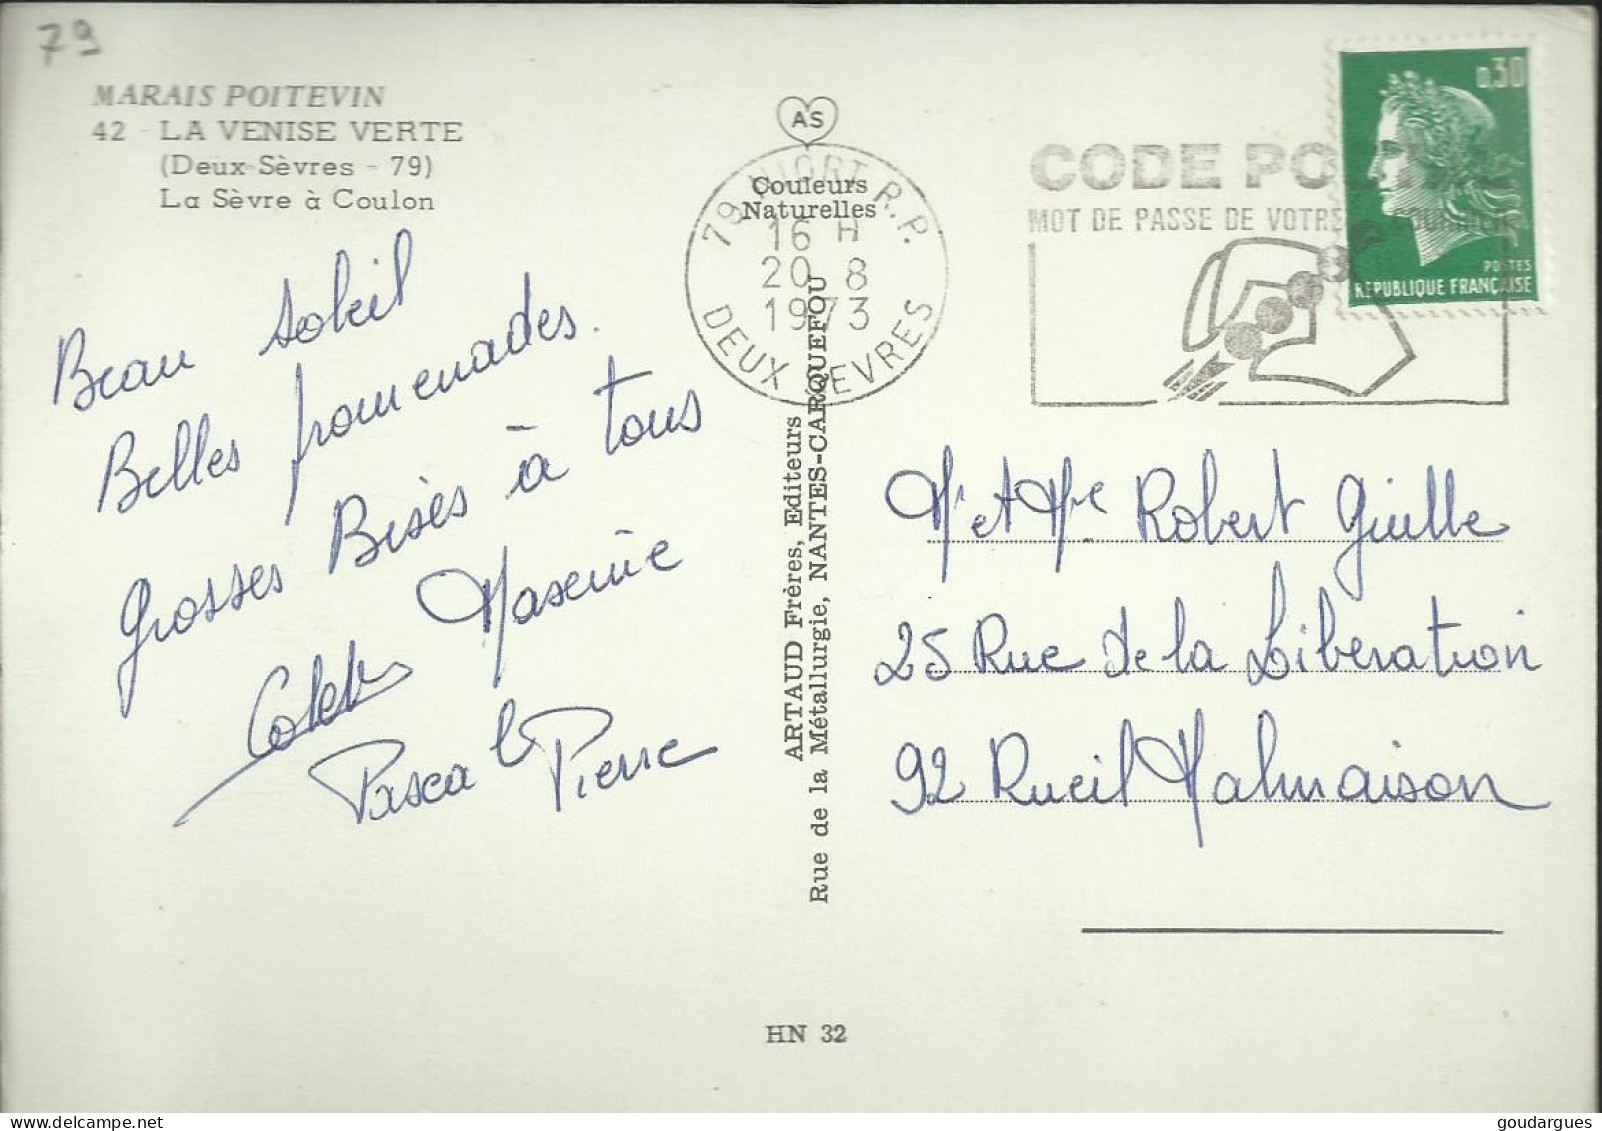 79
MARAIS POITEVIN
42 - LA VENISE VERTE
(Deux-Sèvres - 79)
La Sèvre à Coulon
Beau soleil
Belles promenades.
Grosses Bises à tous
Pascal Pierre
AS
Couleurs
Naturelles
79 NIORT R.P.
16 H
20 8
1973
DEUX SEVRES
ARTAUD Frères, Editeurs
Rue de la Métallurgie, NANTES-CARQUEFOU
HN 32
CODE PO
MOT DE PASSE DE VOTRE
0,30
POSTES
REPUBLIQUE FRANÇAISE
Mr et Mme Robert Guille
25 Rue de la Libération
92 Rueil Malmaison
goudargues